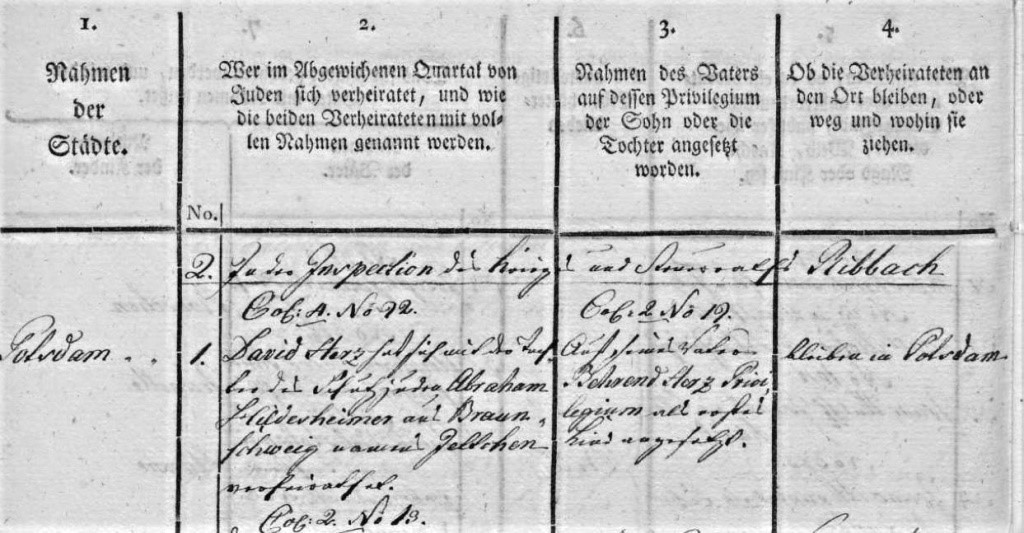 1.
Nahmen
der
Städte.
2.
Wer im Abgewichenen Quartal von
Juden sich verheiratet, und wie
die beiden Verheirateten mit vol-
len Nahmen genannt werden.
3.
Nahmen des Vaters
auf dessen Privilegium
der Sohn oder die
Tochter angesetzt
worden.
4.
Ob die Verheirateten an
den Ort bleiben, oder
weg und wohin sie
ziehen.
No.
2. In der Inspection des Krieges und Steuerraths Ribbach
Col: 4. No 22.
Col: 2. No 19.
Potsdam
1.
David Herz hat sich mit der Toch-
ter des Schutzjuden Abraham
Hildesheimer aus Braun-
schweig namens Jeltchen
verheirathet.
Auf seines Vaters
Behrend Herz Privi-
legium als erstes
Kind angesetzt.
bleiben in Potsdam
Col: 2. No 13.